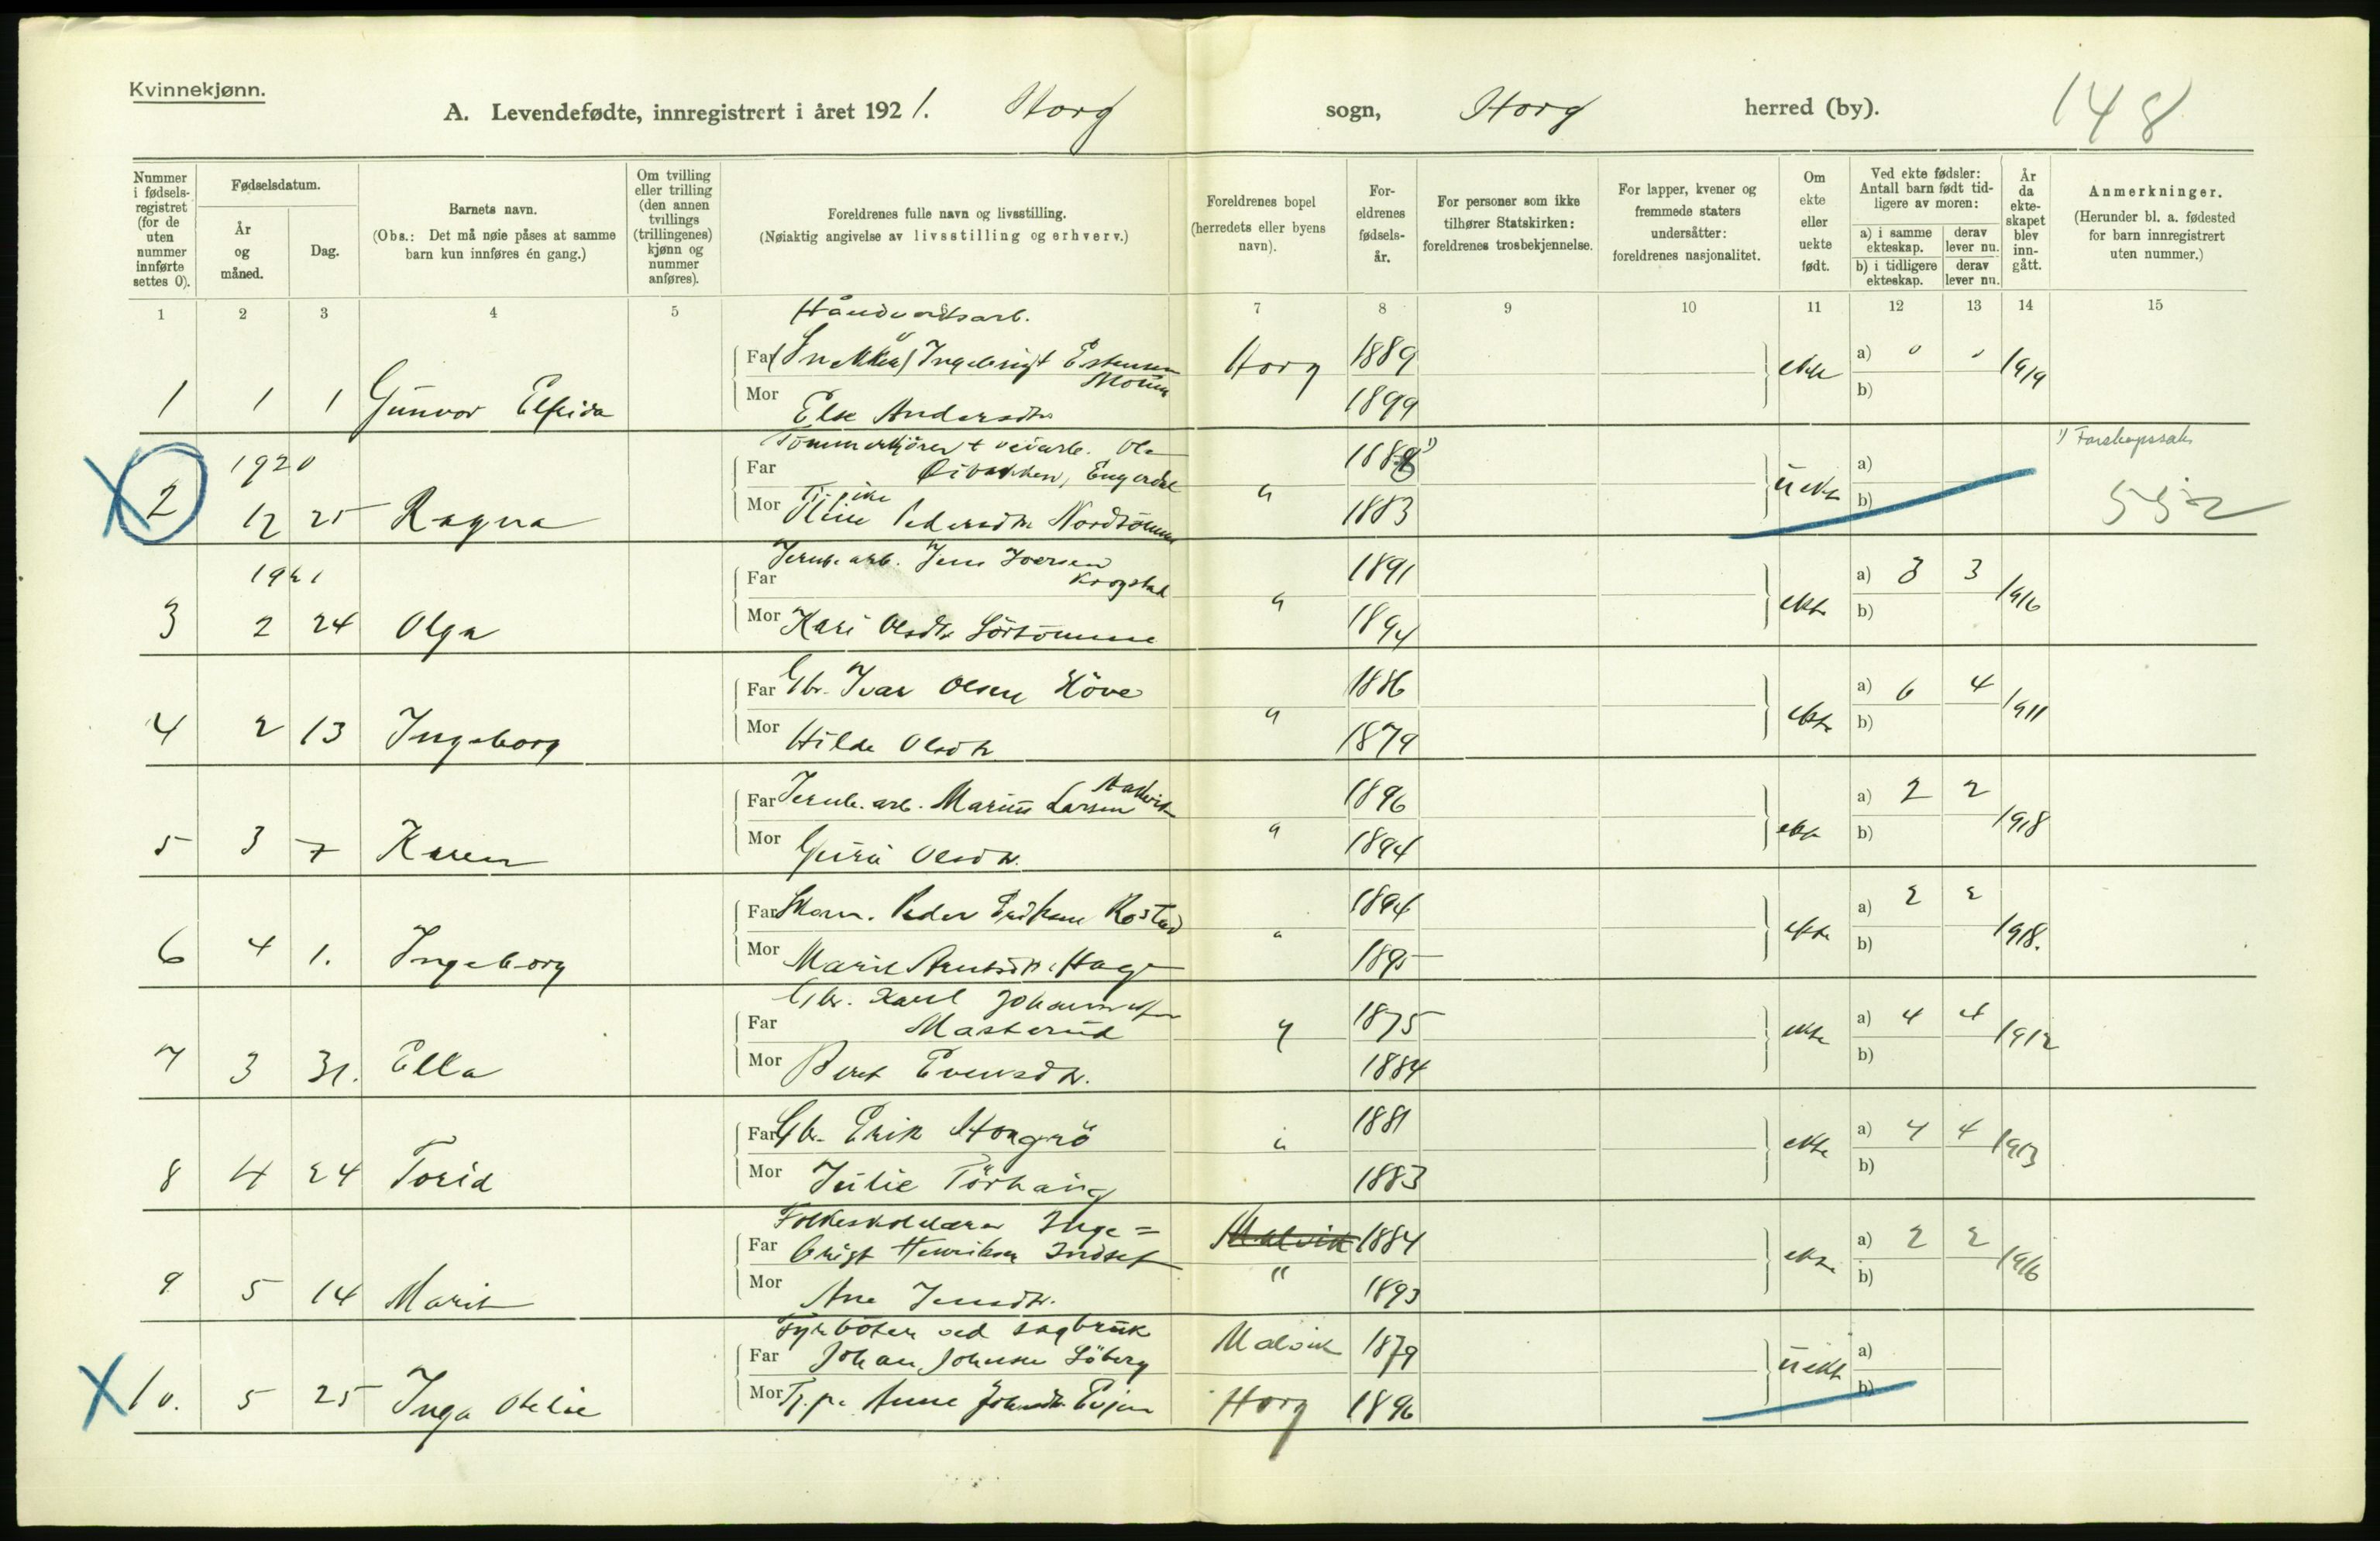 Kvinnekjønn.
A. Levendefødte, innregistrert i året 1921. Horg sogn, Horg herred (by). 148
Nummer i fødselsregistret (for de uten nummer innførte settes 0).
Fødselsdatum.
År og måned.
Dag.
Barnets navn.
(Obs.: Det må nøie påses at samme barn kun innføres én gang.)
Om tvilling eller trilling (den annen tvillings (trillingenes) kjønn og nummer anføres).
Foreldrenes fulle navn og livsstilling.
(Nøiaktig angivelse av livsstilling og erhverv.)
Foreldrenes bopel (herredets eller byens navn).
Foreldrenes fødselsår.
For personer som ikke tilhører Statskirken: foreldrenes trosbekjennelse.
For lapper, kvener og fremmede staters undersåtter: foreldrenes nasjonalitet.
Om ekte eller uekte født.
Ved ekte fødsler: Antall barn født tidligere av moren:
a) i samme ekteskap.
derav lever nu.
b) i tidligere ekteskap.
derav lever nu.
År da ekteskapet blev inngått.
Anmerkninger.
(Herunder bl. a. fødested for barn innregistrert uten nummer.)
1 2 3 4 5 7 8 9 10 11 12 13 14 15
Håndverksarb.
Far (Snekker) Ingebrigt Estensen Horg 1889 a) 0 0
1 1 1 Gunvor Elfrida ekte 1919
Mor Else Andersdtr 1899 b)
Tømmerkjører + veiarb. Ole 1) Farskapssak
1920 Far Engerdal 188 a)
2 12 25 Ragna " uekte 552
Mor Oline Pedersdtr Nordtømme 1883 b)
Jernb. arb. Jens Iversen
1921 Far Krogstad 1891 a) 3 3
3 2 24 Olga " ekte 1916
Mor Kari Olsdtr Sørtømme 1894 b)
Far Gbr. Ivar Olsen Høve 1886 a) 6 4
4 2 13 Ingeborg " ekte 1911
Mor Hilda Olsdtr 1879 b)
Far Jernb. arb. Marius Larsen 1896 a) 2 2
5 3 7 Karen " ekte 1918
Mor Guru Olsdtr. 1894 b)
Far Peder Eriksen Rostad 1894 a) 2 2
6 4 1. Ingeborg " ekte 1918.
Mor Marit Arntsdtr. Hage 1895 b)
Gbr. Karl Johannessen
Far Masterud 1875 a) 4 4
7 3 31. Ella " ekte 1912
Mor Beret Evensdtr. 1884 b)
Far Gbr. Erik Hongrø 1881 a) 4 4
8 4 24 Torid " ekte 1913
Mor Julie Törhaug 1883 b)
Folkeskolelærer Inge=
Far brigt Henriksen Indset Malvik 1884 a) 2 2
9 5 14 Marit " ekte 1916
Mor Ane Jensdtr. 1893 b)
Fyrbøter ved sagbruk
Far Johan Johnsen Söberg Malvik 1879 a)
10. 5 25 Inga Otelie uekte
Mor Tj.p. Anne Evjen Horg 1896 b)